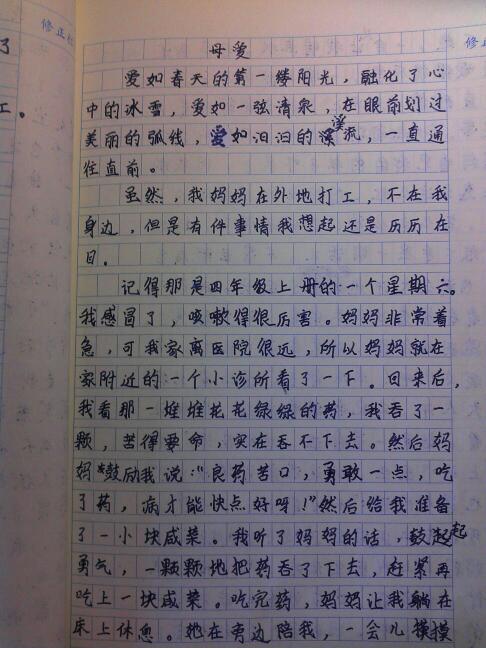 修正
了
工。
母爱
爱如春天的第一缕阳光，融化了心
中的冰雪，爱如一弦清泉，在眼前划过
美丽的弧线，爱如汩汩的溪流，一直通
往直前。
虽然，我妈妈在外地打工，不在我
身边，但是有件事情我想起还是历历在
目。
记得那是四年级上册的一个星期六。
我感冒了，咳嗽得很厉害。妈妈非常着
急，可我家离医院很远，所以妈妈就在
家附近的一个小诊所看了一下。回来后，
我看那一堆堆花花绿绿的药，我吞了一
颗，苦得要命，实在吞不下去。然后妈
妈鼓励我说：“良药苦口，勇敢一点，吃
了药，病才能快点好呀！”然后给我准备
了一小块咸菜。我听了妈妈的话，鼓起
勇气，一颗颗地把药吞了下去，赶紧再
吃上一块咸菜。吃完药，妈妈让我躺在
床上休息。她在旁边陪我，一会儿摸摸